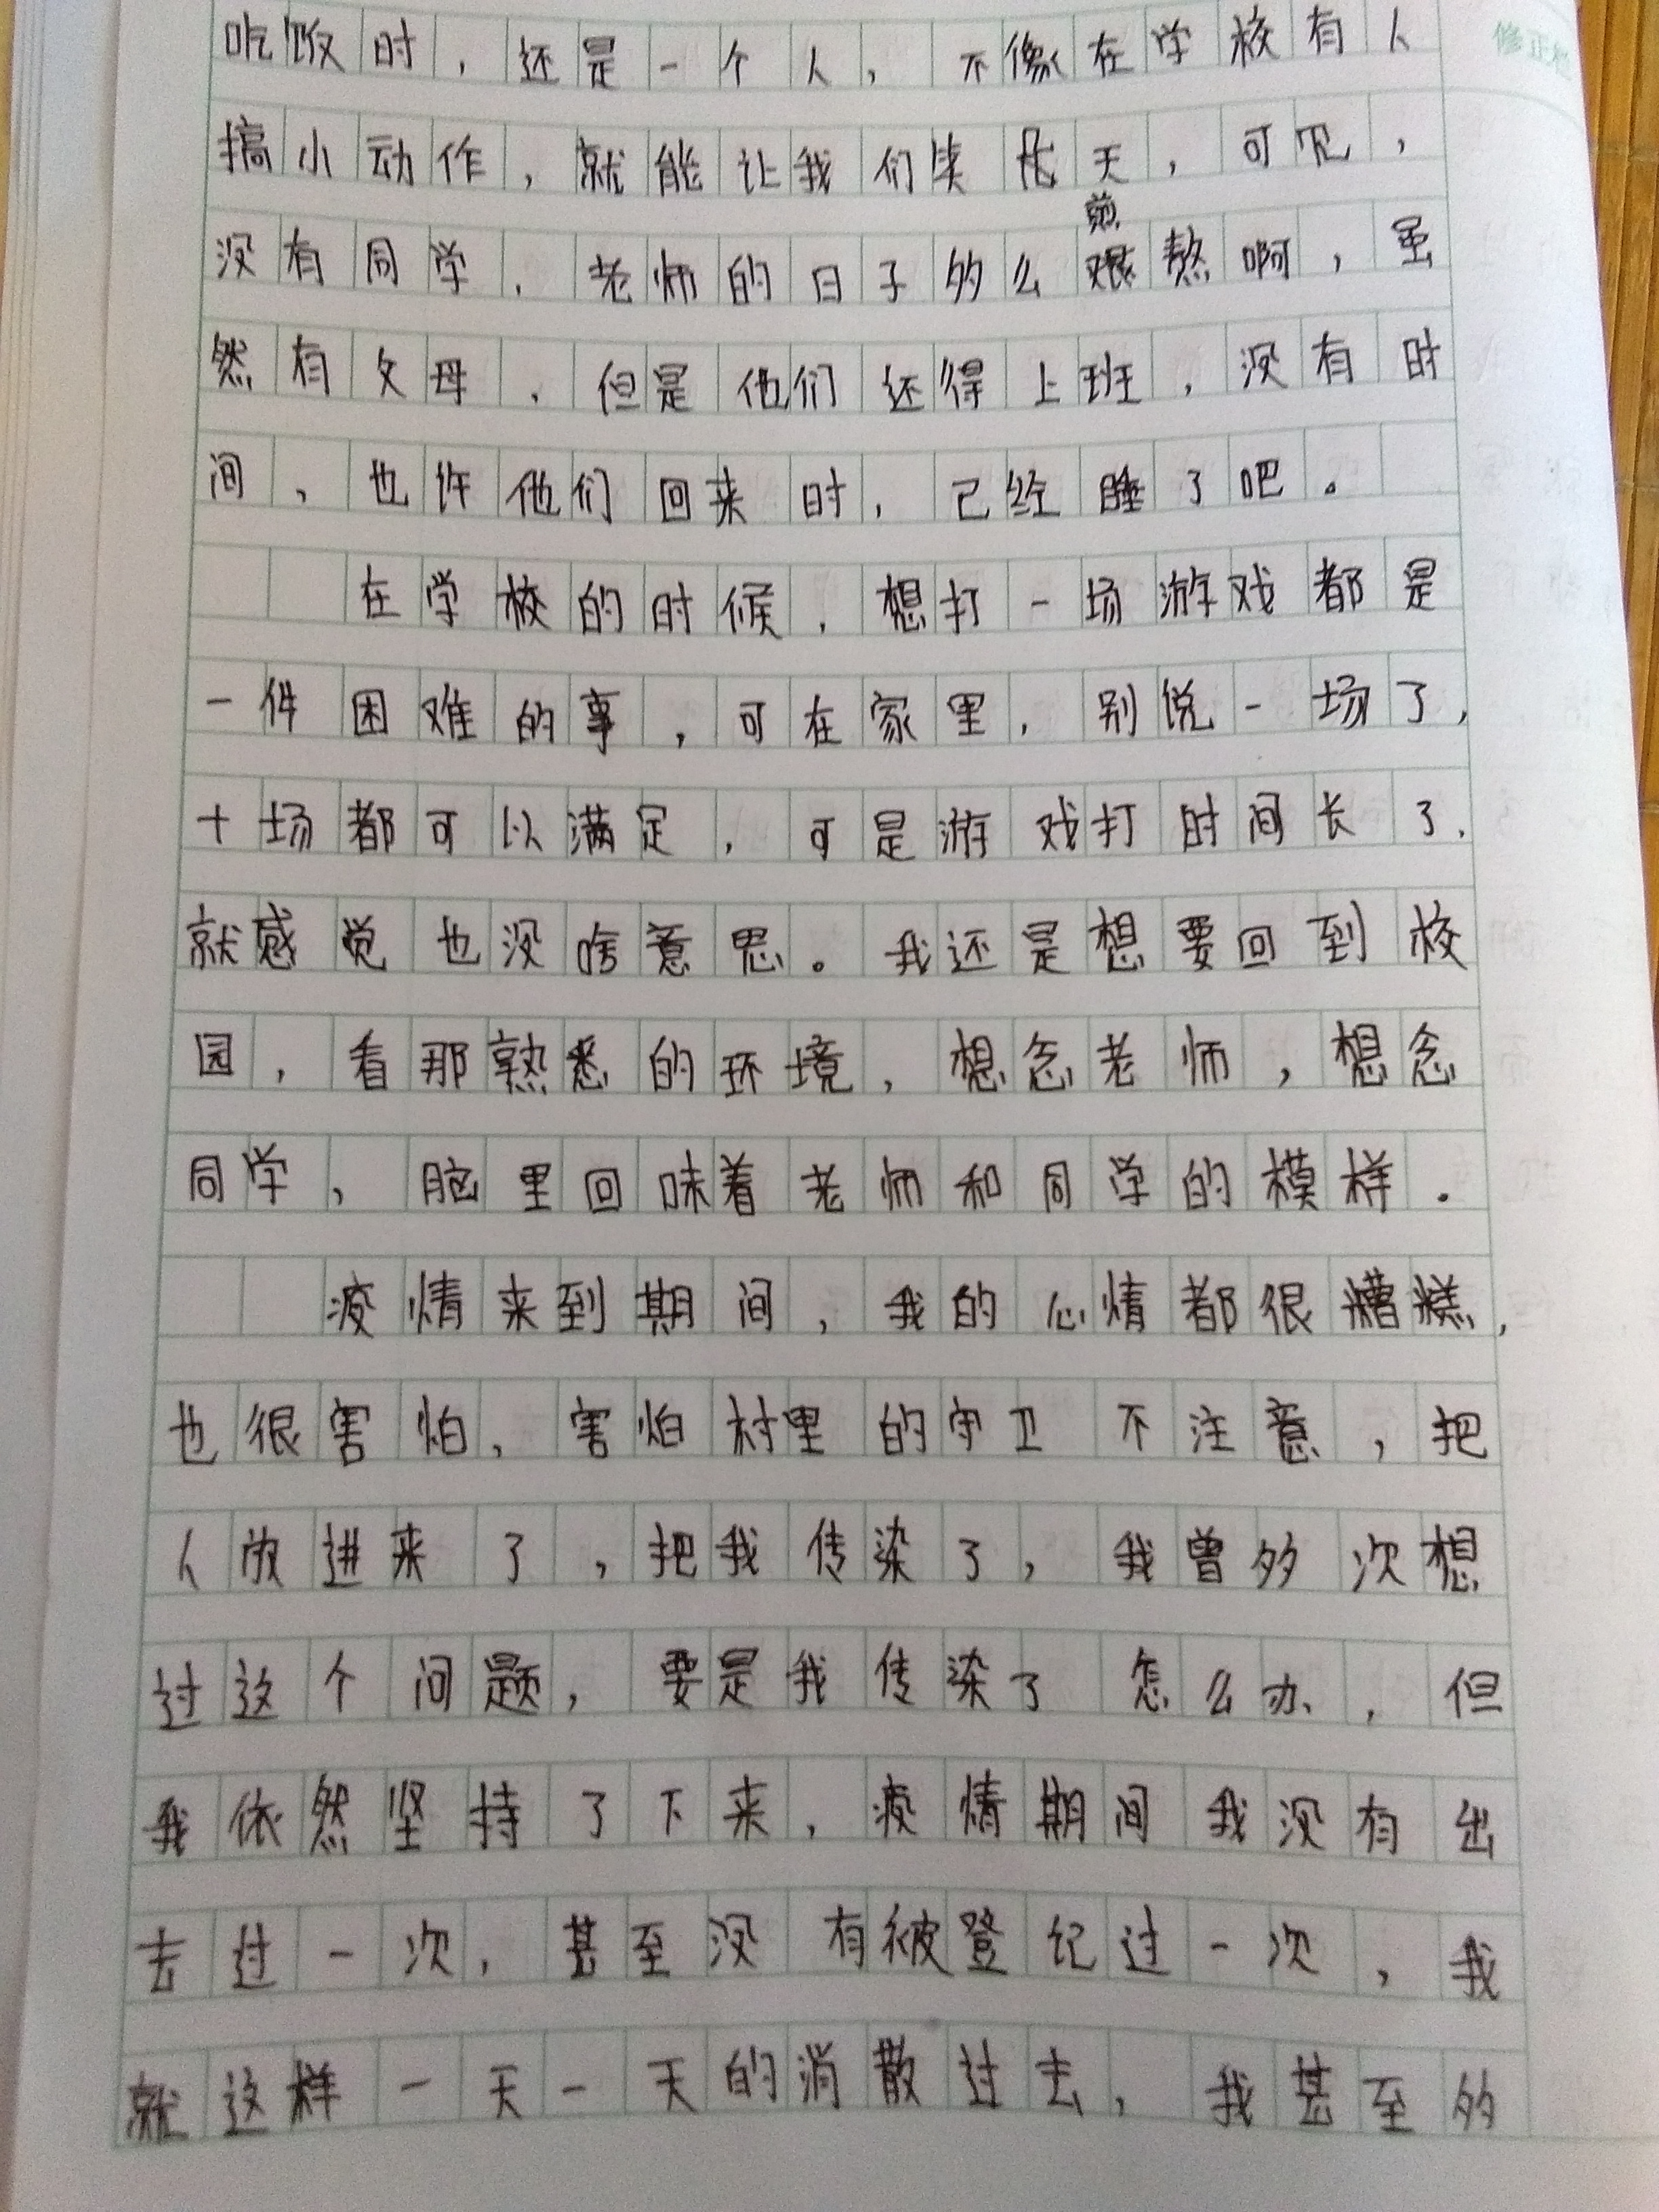 吃饭时，还是一个人，不像在学校有人
修正栏
搞小动作，就能让我们笑半天，可见，
煎
没有同学、老师的日子多么艰熬啊，虽
然有父母，但是他们还得上班，没有时
间，也许他们回来时，已经睡了吧。
在学校的时候，想打一场游戏都是
一件困难的事，可在家里，别说一场了，
十场都可以满足，可是游戏打时间长了，
就感觉也没啥意思。我还是想要回到校
园，看那熟悉的环境，想念老师，想念
同学，脑里回味着老师和同学的模样。
疫情来到期间，我的心情都很糟糕，
也很害怕，害怕村里的守卫不注意，把
人放进来了，把我传染了，我曾多次想
过这个问题，要是我传染了怎么办，但
我依然坚持了下来，疫情期间我没有出
去过一次，甚至没有被登记过一次，我
就这样一天一天的消散过去，我甚至多